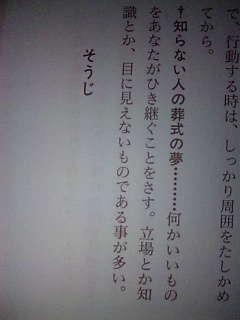 で、行動する時は、しっかり周囲をたしかめ
てから。
†知らない人の葬式の夢…………何かいいもの
をあなたがひき継ぐことをさす。立場とか知
識とか、目に見えないものである事が多い。
そうじ